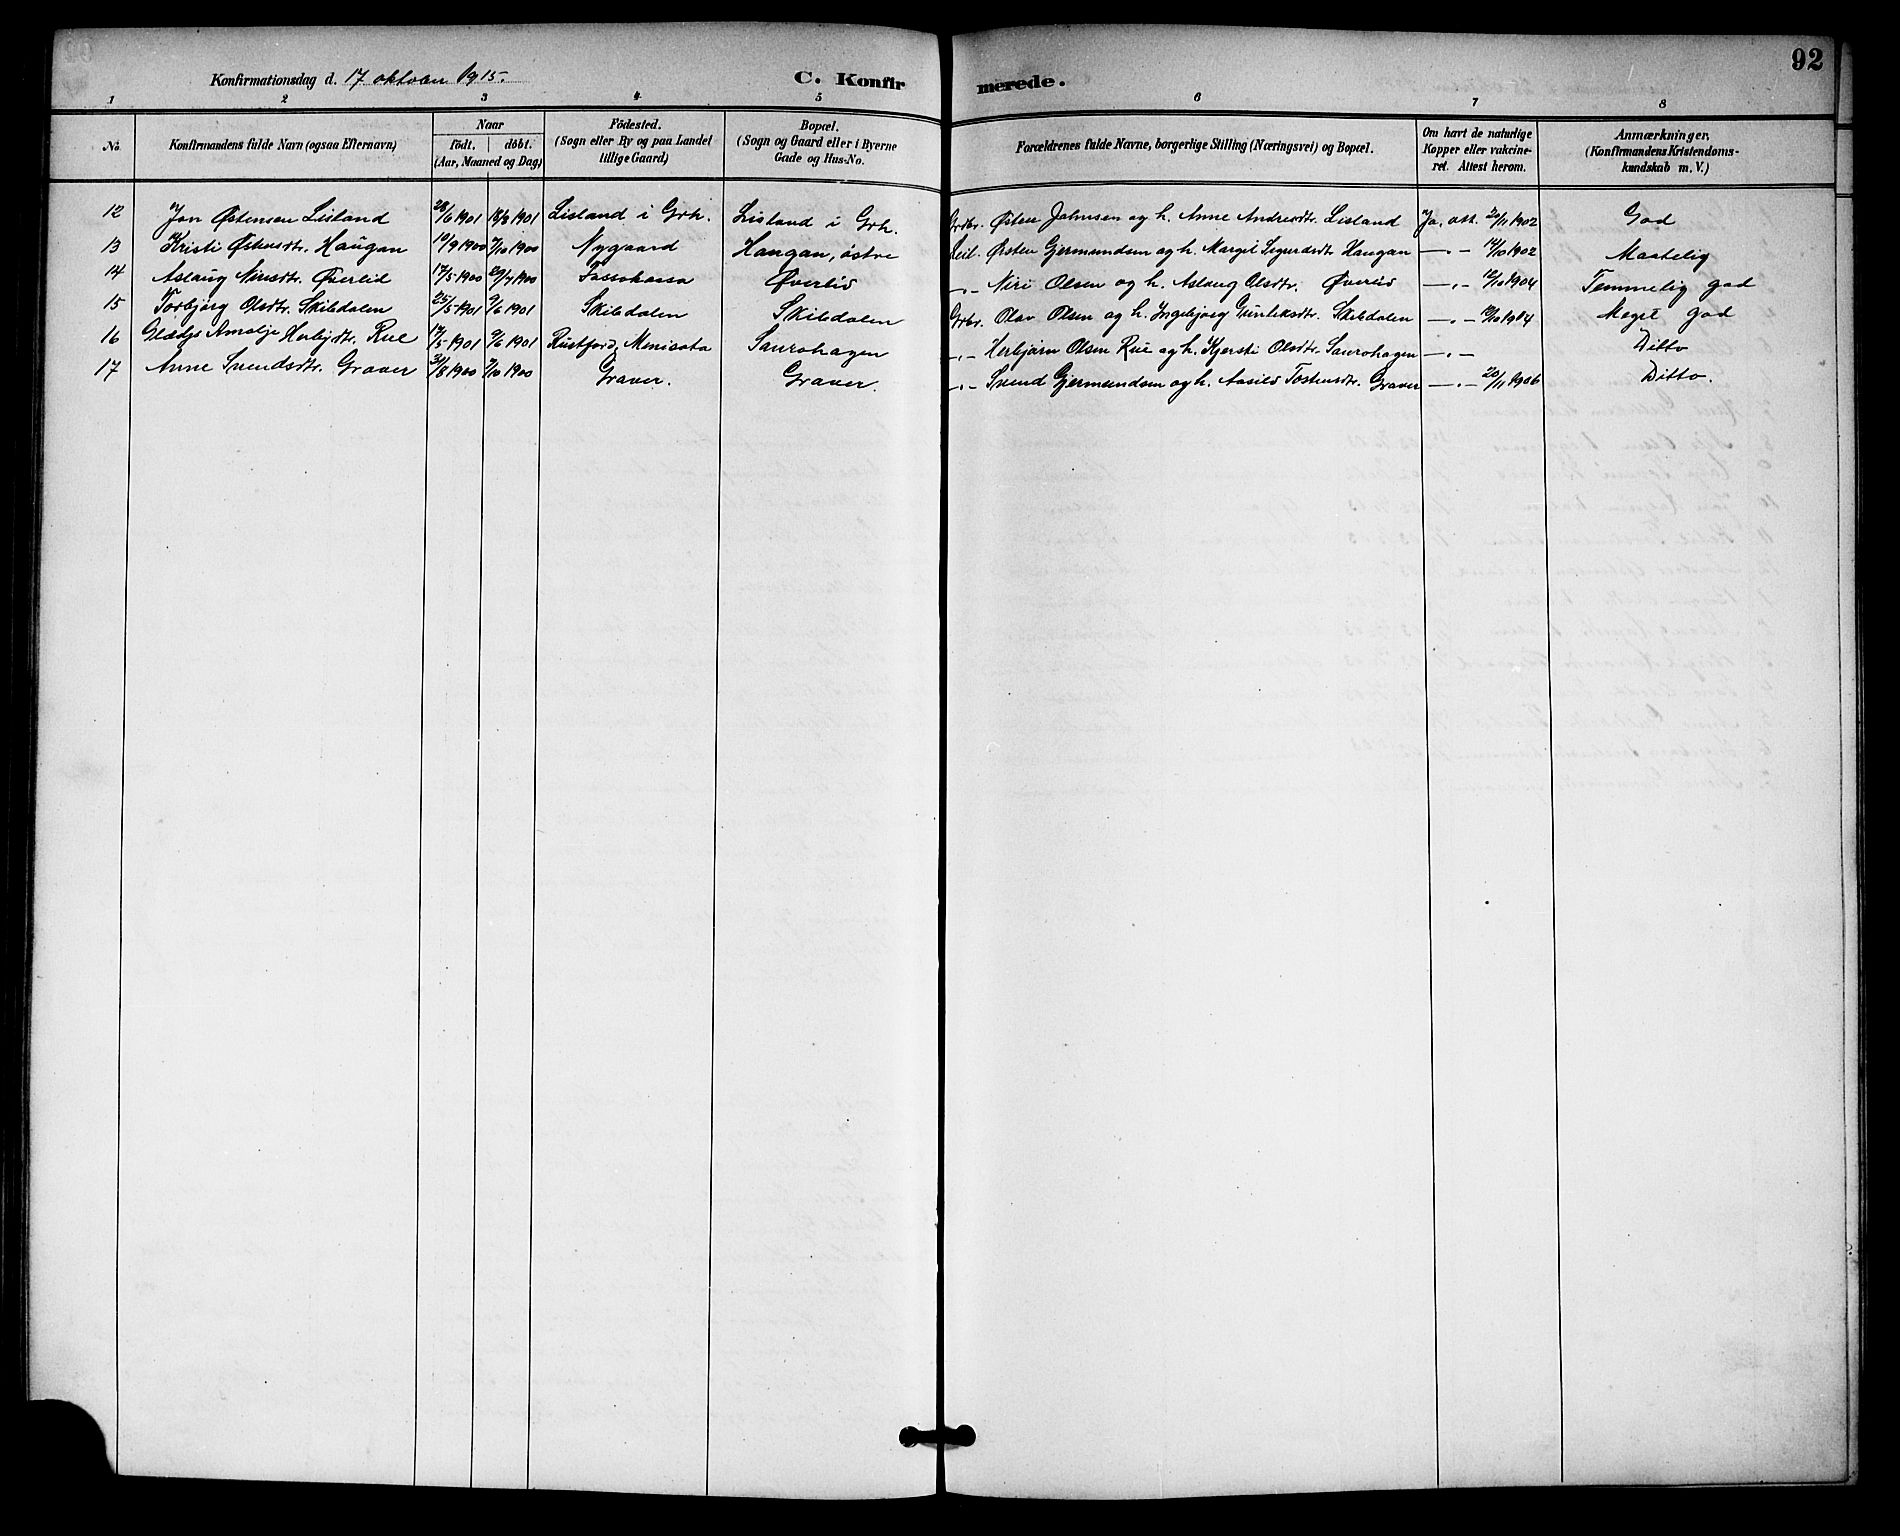 92
Konfirmationsdag d. 17 oktober 1915.
C. Konfirmerede.
1 2 3 4 5 6 7 8
No. | Konfirmandens fulde Navn (ogsaa Efternavn) | Naar födt. | döbt. (Aar, Maaned og Dag) | Födested. (Sogn eller By og paa Landet tillige Gaard) | Bopæl. (Sogn og Gaard eller i Byerne Gade og Hus-No. | Forældrenes fulde Navne, borgerlige Stilling (Næringsvei) og Bopæl. | Om havt de naturlige Kopper eller vakcineret. Attest herom. | Anmærkninger. (Konfirmandens Kristendomskundskab m. V.)
12 Jon Østensen Lisland 28/6 1901 18/8 1901 Lisland i Grh. Lisland i Grh. Grbr. Østen Johnsen og h. Anne Andresdtr. Lisland Ja, att. 20/11 1902 God
13 Kristi Østensdtr. Haugan 10/9 1900 7/10 1900 Nygaard Haugan, østre Leil. Østen Gjermundsen og h. Margit Sigurdsdt Haugan —„— 14/10 1902 Maatelig
14 Aslaug Nirisdtr. Øverlid 17/5 1900 29/7 1900 Øverlid —„— Niri Olsen og h. Aslaug Olsdtr. Øverlid —„— 12/10 1904 Temmelig god
15 Torbjørg Olsdtr. Skildalen 25/5 1901 9/6 1901 Skildalen Skildalen Grbr. Olav Olsen og h. Ingebjørg Gunleksdtr. Skildalen —„— Meget god
16 Amalje Herbjdtr. Rue 9/6 1901 Rustford, Menisota Saurohagen —„— Herbjørn Olsen Rue og h. Kjersti Olsdtr. Saurohagen —„— Ditto
17 Anne Svendsdtr. Graver 31/8 1900 7/10 1900 Graver. Graver. —„— Svend Gjermundsen og h. Aasild Tostensdtr. Graver —„— 20/11 1906 Ditto.